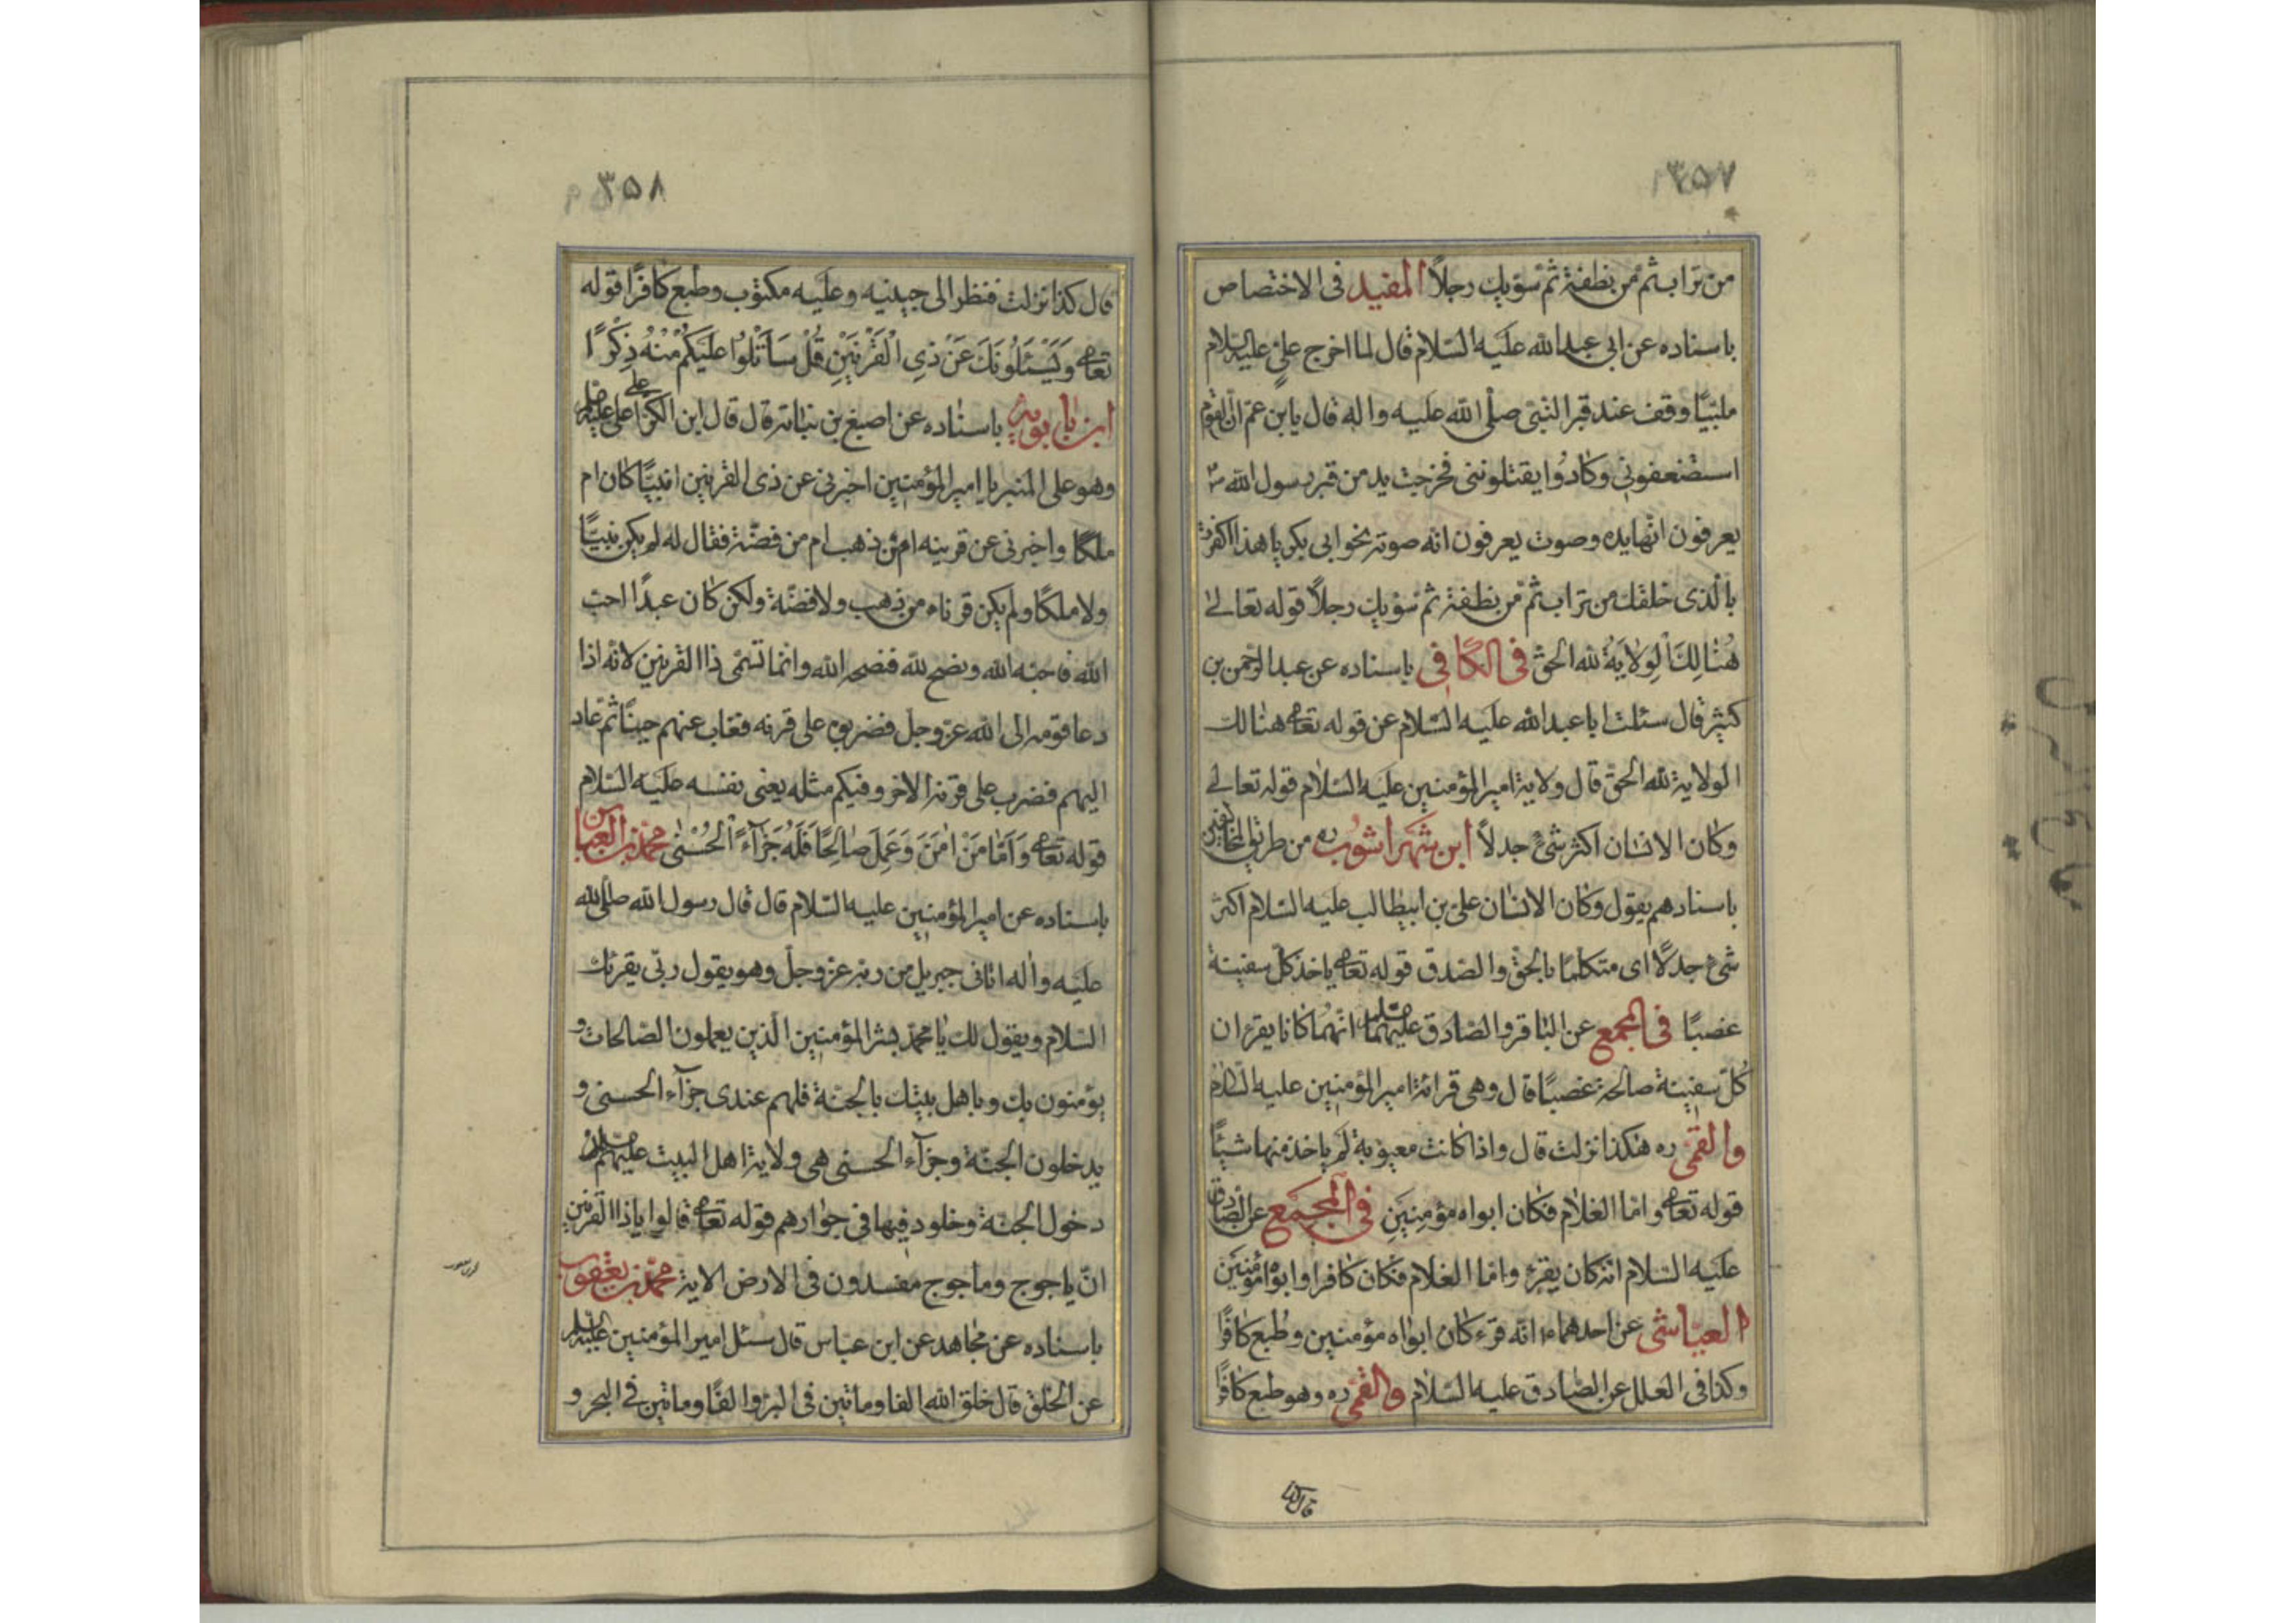 ٣٥٧
من تراب ثم من نطفة ثم سوّيك رجلاً المفيد فى الاختصاص
باسناده عن ابى عبد الله عليه السلام قال لما اخرج علىّ عليه السلام
ملبّيًا وقف عند قبر النبى صلى الله عليه واله قال يا بن عمّ انّ القوم
استضعفونى وكادُوا يقتلوننى فخرجت يد من قبر رسول الله ص
يعرفون انّها يده وصوت يعرفون انه صوته نحو ابى بكر يا هذا اكفرت
بالّذى خلقك من تراب ثمّ من نطفة ثم سوّيك رجلاً قوله تعالى
هُنالِكَ الوِلايَةُ لله الحقّ فى الكافى باسناده عن عبد الرحمن بن
كثير قال سئلت ابا عبد الله عليه السلام عن قوله تعالى هنالك
الولاية لله الحقّ قال ولاية امير المؤمنين عليه السلام قوله تعالى
وكان الانسان اكثر شئ جدلاً ابن شهراشوب ره من طريق المخالفين
باسنادهم يقول وكان الانسان علىّ بن ابيطالب عليه السلام اكثر
شئ جدلاً اى متكلما بالحقّ والصّدق قوله تعالى ياخذ كلّ سفينة
غصبًا فى المجمع عن الباقر والصّادق عليهما السلام انّهما كانا يقرءان
كُلّ سفينة صالحة غصبًا قال وهى قرائة امير المؤمنين عليه السلام
والقمّى ره هكذا نزلت قال واذا كانت معيوبة لم ياخذ منها شيئًا
قوله تعالى وامّا الغلام فكان ابواه مؤمنين فى المجمع عن الصّادق
عليه السلام انّه كان يقرء وامّا الغلام فكان كافرا وابواه مؤمنين
العيّاشى عن احدهما ع انّه قرء كان ابواه مؤمنين وطبع كافرًا
وكذا فى العلل عن الصّادق عليه السلام والقمّى ره وهو طبع كافرًا
قال كذا
٣٥٨
قال كذا نزلت فنظر الى جبينه وعليه مكتوب وطبع كافرًا قوله
تعالى وَيَسْئَلُونَكَ عَنْ ذِى الْقَرْنَيْنِ قُلْ سَاَتْلُوا عَلَيكُمْ مِنْهُ ذِكْرًا
ابن بابويه باسناده عن اصبغ بن نباته قال قال ابن الكوّا على علىّ عليه السلام
وهو على المنبر يا امير المؤمنين اخبرنى عن ذى القرنين انبيّا كان ام
ملكًا واخبرنى عن قرنيه امن ذهب ام من فضّة فقال له لم يكن نبيًّا
ولا ملكًا ولم يكن قرناه من ذهب ولا فضّة ولكن كان عبدًا احبّ
الله فاحبّه الله ونصح لله فنصحه الله وانّما تسمّى ذا القرنين لانّه اذا
دعا قومه الى الله عزّ وجلّ فضربوه على قرنه فغاب عنهم حينًا ثمّ عاد
اليهم فضرب على قرنه الاخر وفيكم مثله يعنى نفسه عليه السلام
قوله تعالى وَاَمّا مَنْ امَنَ وَعَمِلَ صالِحًا فَلَهُ جَزآءً الحُسْنى محمّد بن العبّاس
باسناده عن امير المؤمنين عليه السّلام قال قال رسول الله صلّى الله
عليه واله اتانى جبريل من ربّه عزّ وجلّ وهو يقول ربّى يقرئك
السّلام ويقول لك يا محمّد بشّر المؤمنين الّذين يعملون الصّالحات و
يؤمنون بك وباهل بيتك بالجنّة فلهم عندى جزآء الحسنى و
يدخلون الجنّة وجزآء الحسنى هى ولاية اهل البيت عليهم السلام
دخول الجنّة وخلود فيها فى جوارهم قوله تعالى قالوا يا ذا القرنين
انّ ياجوج وماجوج مفسدون فى الارض الاية محمّد بن يعقوب
باسناده عن مجاهد عن ابن عبّاس قال سئل امير المؤمنين عليه السلام
عن الخلق قال خلق الله الفا وماتين فى البرّ والفًا وماتين فى البحر و